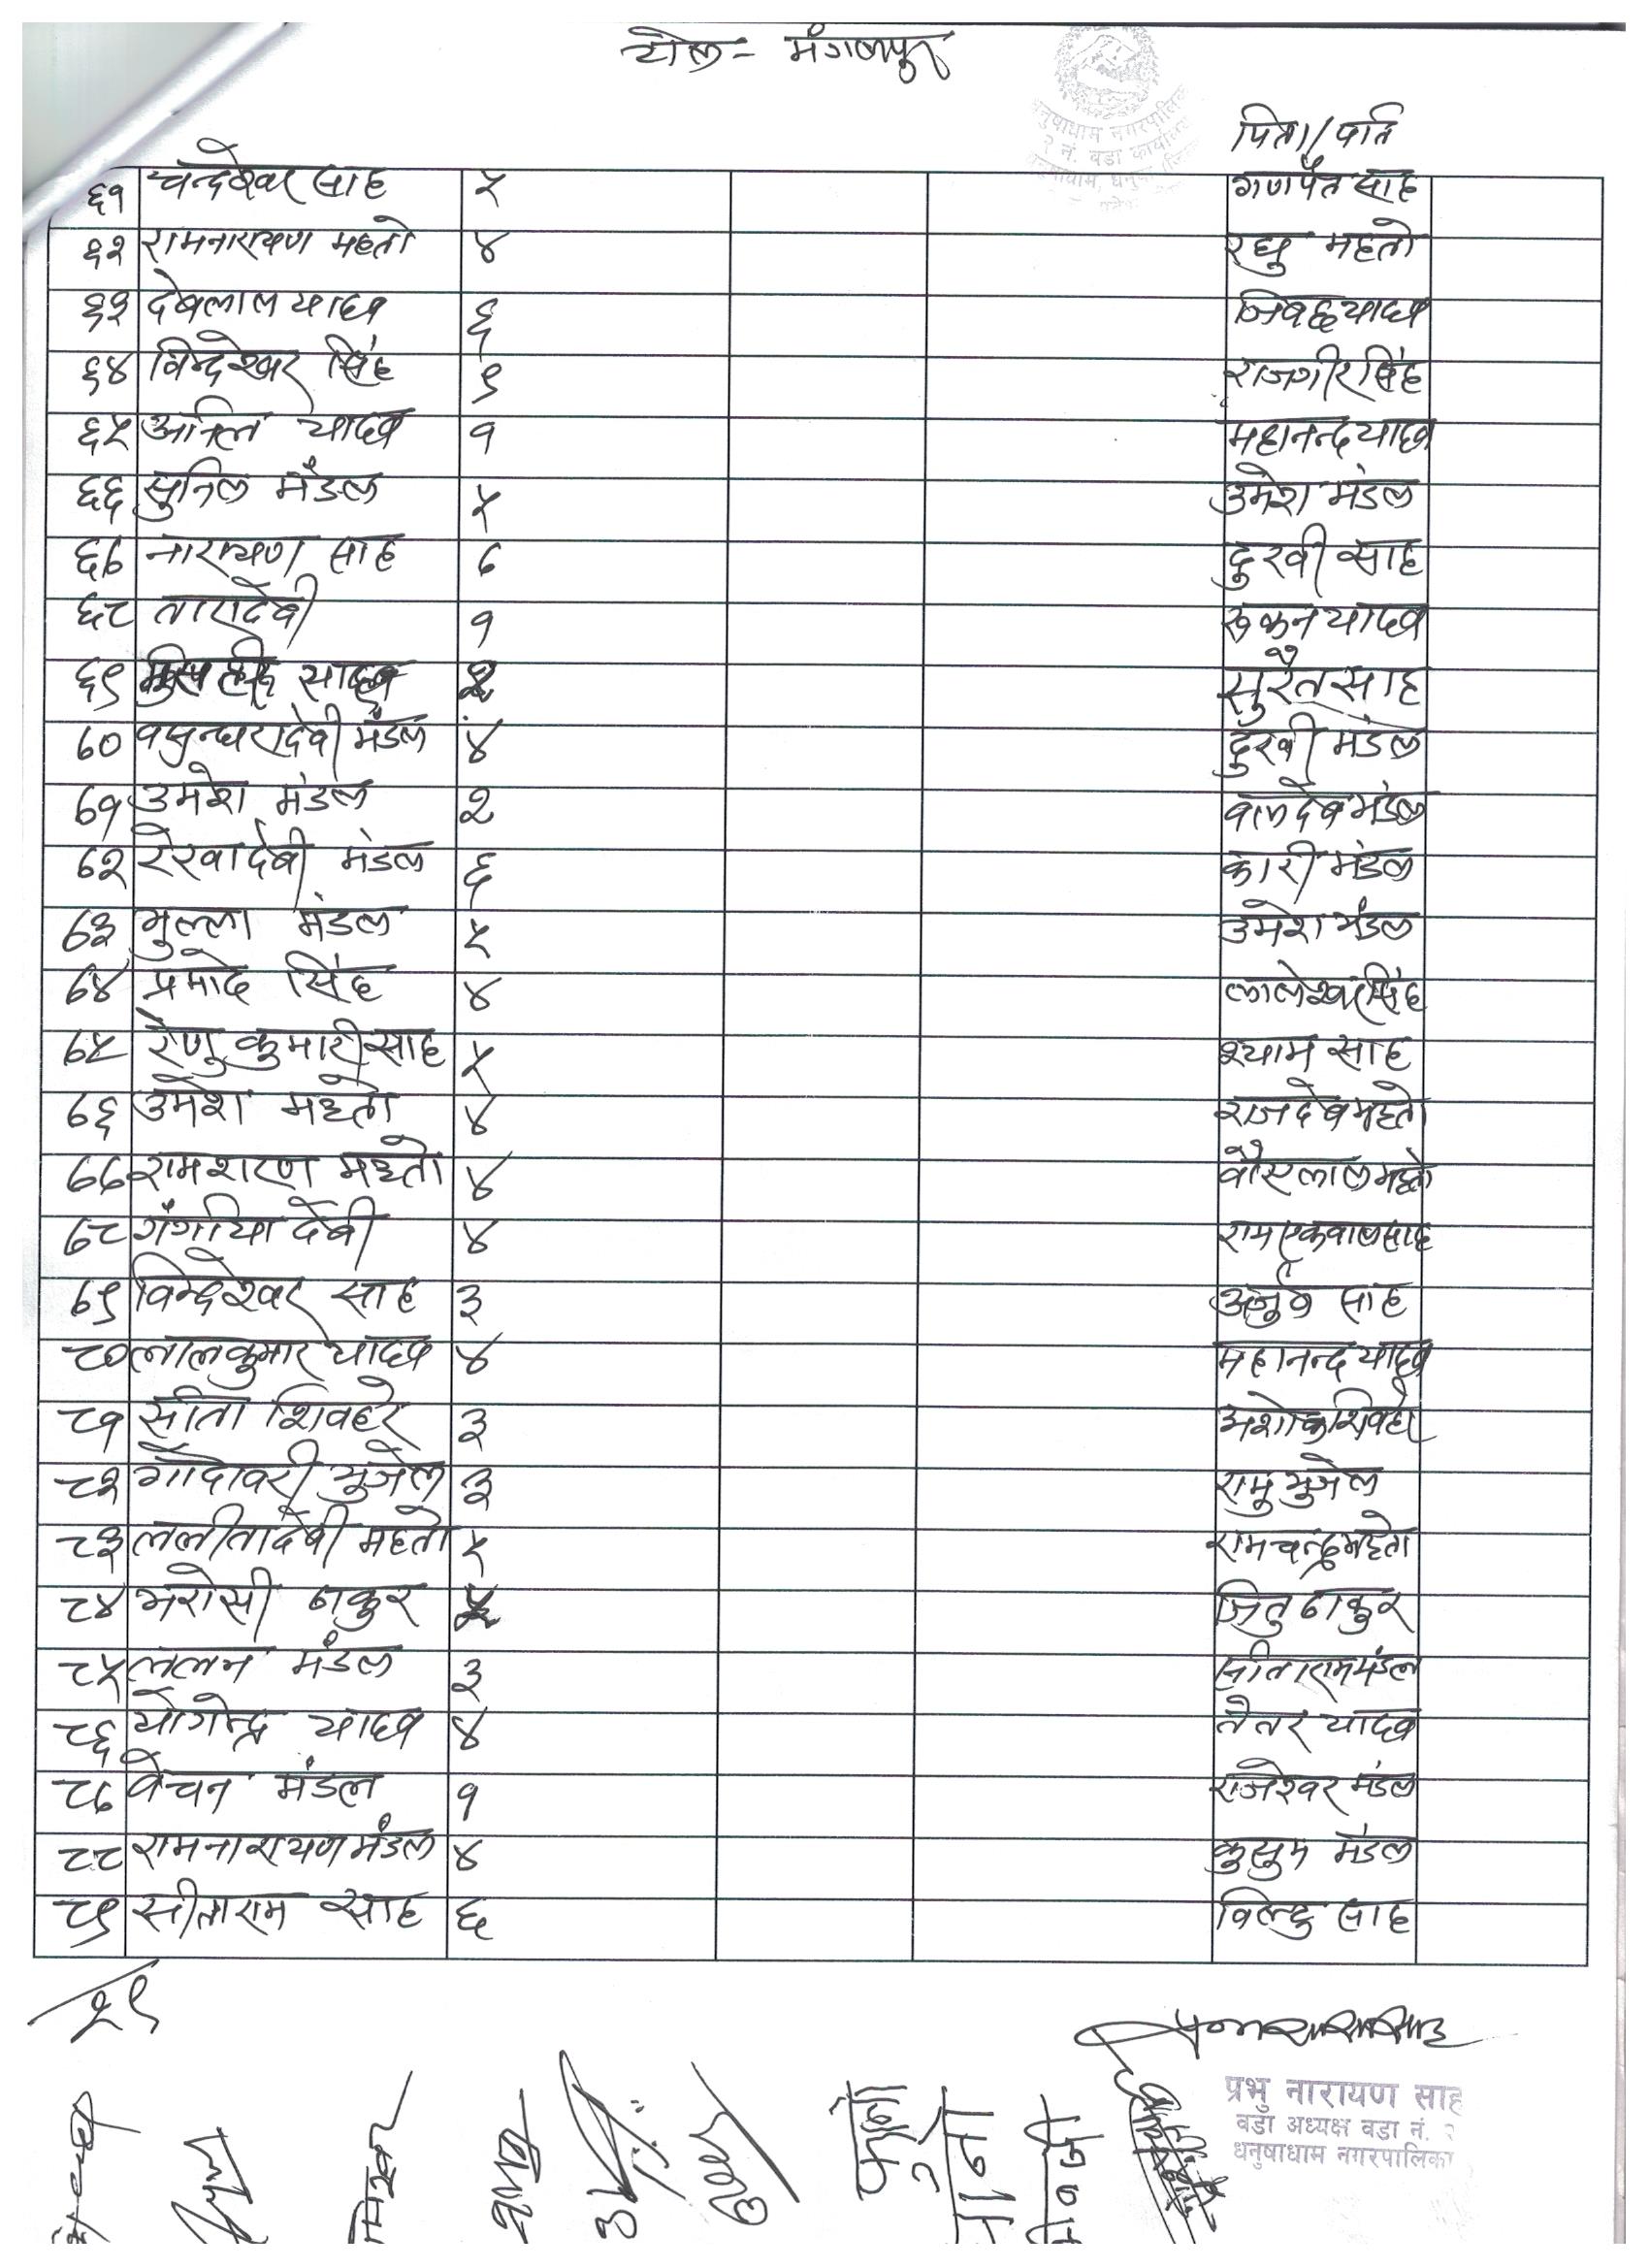 टोल = मंगलपुर
धनुषाधाम नगरपालिका
२ नं. वडा कार्यालय
धनुषाधाम, धनुषा
पिता/पति
६१ चन्देश्वर साह ५ गणपैत साह
६२ रामनारायण महतो ४ रघु महतो
६३ देवलाल यादव ६ जिवछ यादव
६४ विन्देश्वर सिंह ९ राजगीर सिंह
६५ अनिल यादव १ महानन्द यादव
६६ सुनिल मंडल ५ उमेश मंडल
६७ नारायण साह ७ दुखी साह
६८ तारादेवी १ रुकन यादव
६९ सुरैत साह
७० वसुन्धरादेवी मंडल ४ दुखी मंडल
७१ उमेश मंडल २ बलदेव मंडल
७२ रेखादेवी मंडल ६ कारी मंडल
७३ भुल्ला मंडल ५ उमेश मंडल
७४ प्रमोद सिंह ४ लालेश्वर सिंह
७५ रेणु कुमारी साह ५ श्याम साह
७६ उमेश महतो ४ राजदेव महतो
७७ रामशरण महतो ४ महतो
७८ गंगािया देवी ४ राम एकवाल साह
७९ विन्देश्वर साह ३ साह
८० लालकुमार यादव ४ महानन्द यादव
८१ सीता शिवहरे ३ अशोक शिवहरे
८२ गोदावरी भुजेल ३ रामु भुजेल
८३ ललीतादेवी महतो ५ रामचन्द्र महतो
८४ भरोसी ठाकुर ५ जितु ठाकुर
८५ ललन मंडल ३ सीताराम मंडल
८६ योगेन्द्र यादव ४ तेतर यादव
८७ वेचन मंडल १ राजेश्वर मंडल
८८ रामनारायण मंडल ४ कुसुम मंडल
८९ सीताराम साह ६ विल्टु साह
२९
प्रभु नारायण साह
वडा अध्यक्ष वडा नं. २
धनुषाधाम नगरपालिका